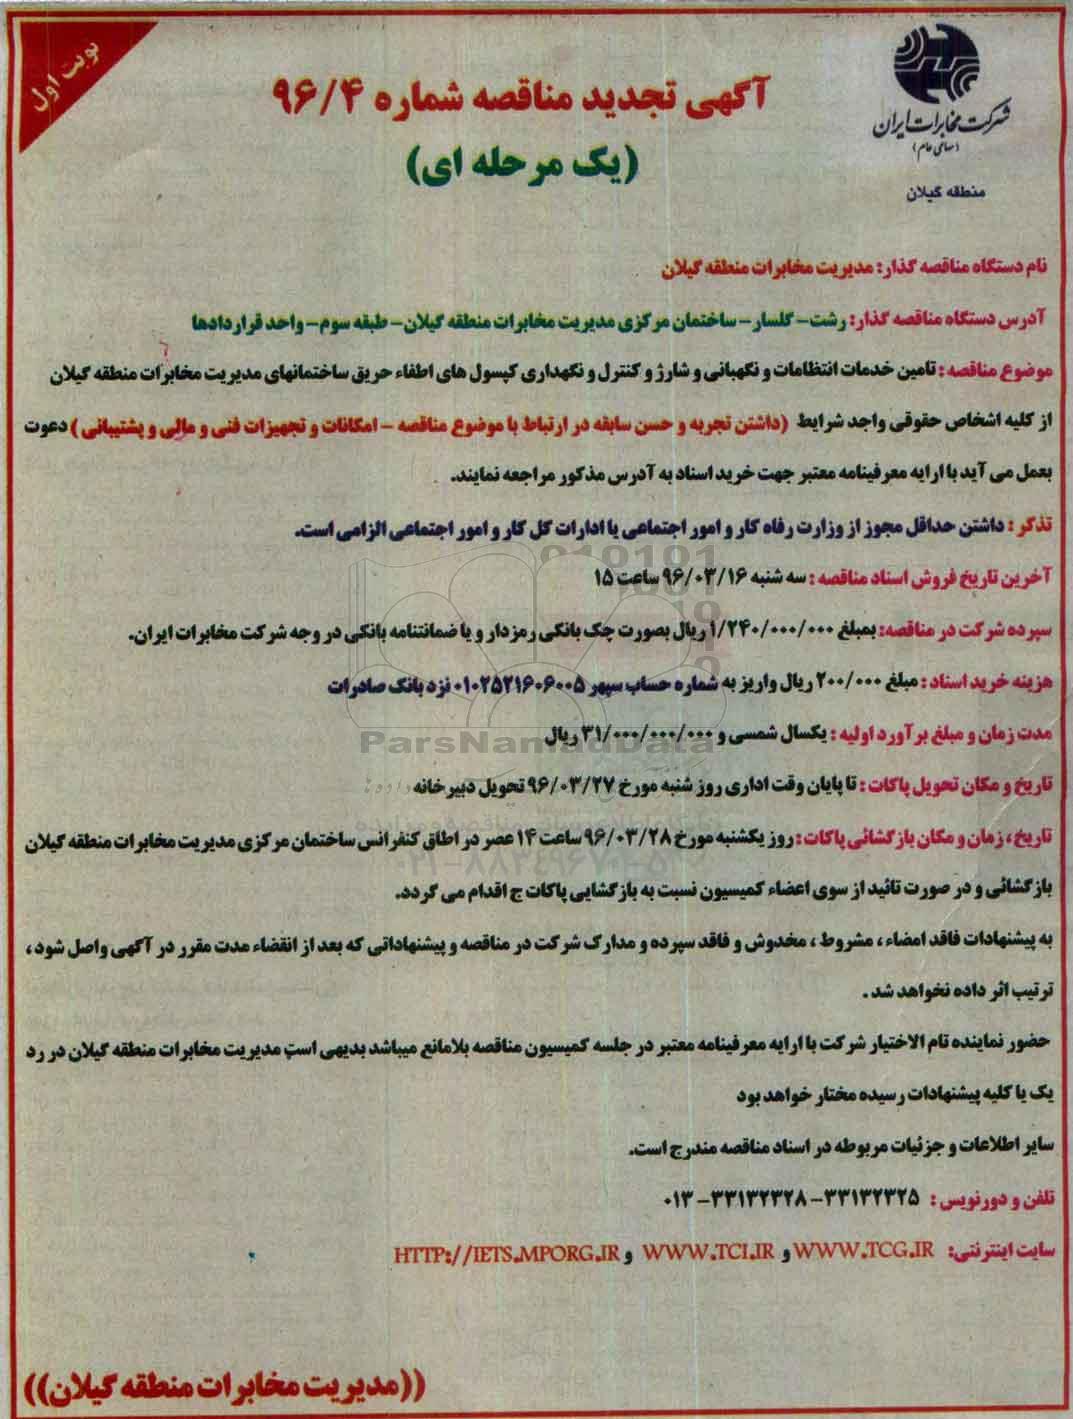 نوبت اول
شرکت مخابرات ایران
(سهامی عام)
منطقه گیلان
آگهی تجدید مناقصه شماره ۹۶/۴
(یک مرحله ای)
نام دستگاه مناقصه گذار: مدیریت مخابرات منطقه گیلان
آدرس دستگاه مناقصه گذار: رشت- گلسار- ساختمان مرکزی مدیریت مخابرات منطقه گیلان- طبقه سوم- واحد قراردادها
موضوع مناقصه: تامین خدمات انتظامات و نگهبانی و شارژ و کنترل و نگهداری کپسول های اطفاء حریق ساختمانهای مدیریت مخابرات منطقه گیلان
از کلیه اشخاص حقوقی واجد شرایط (داشتن تجربه و حسن سابقه در ارتباط با موضوع مناقصه - امکانات و تجهیزات فنی و مالی و پشتیبانی) دعوت
بعمل می آید با ارایه معرفینامه معتبر جهت خرید اسناد به آدرس مذکور مراجعه نمایند.
تذکر: داشتن حداقل مجوز از وزارت رفاه کار و امور اجتماعی یا ادارات کل کار و امور اجتماعی الزامی است.
آخرین تاریخ فروش اسناد مناقصه: سه شنبه ۹۶/۰۳/۱۶ ساعت ۱۵
سپرده شرکت در مناقصه: بمبلغ ۱/۲۴۰/۰۰۰/۰۰۰ ریال بصورت چک بانکی رمزدار و یا ضمانتنامه بانکی در وجه شرکت مخابرات ایران.
هزینه خرید اسناد: مبلغ ۲۰۰/۰۰۰ ریال واریز به شماره حساب سپهر ۰۱۰۲۵۲۱۶۰۶۰۰۵ نزد بانک صادرات
مدت زمان و مبلغ برآورد اولیه: یکسال شمسی و ۳۱/۰۰۰/۰۰۰/۰۰۰ ریال
ParsNamadData
تاریخ و مکان تحویل پاکات: تا پایان وقت اداری روز شنبه مورخ ۹۶/۰۳/۲۷ تحویل دبیرخانه
تاریخ، زمان و مکان بازگشائی پاکات: روز یکشنبه مورخ ۹۶/۰۳/۲۸ ساعت ۱۴ عصر در اطاق کنفرانس ساختمان مرکزی مدیریت مخابرات منطقه گیلان
بازگشائی و در صورت تائید از سوی اعضاء کمیسیون نسبت به بازگشایی پاکات ج اقدام می گردد.
به پیشنهادات فاقد امضاء، مشروط، مخدوش و فاقد سپرده و مدارک شرکت در مناقصه و پیشنهاداتی که بعد از انقضاء مدت مقرر در آگهی واصل شود،
ترتیب اثر داده نخواهد شد.
حضور نماینده تام الاختیار شرکت با ارایه معرفینامه معتبر در جلسه کمیسیون مناقصه بلامانع میباشد بدیهی است مدیریت مخابرات منطقه گیلان در رد
یک یا کلیه پیشنهادات رسیده مختار خواهد بود
سایر اطلاعات و جزئیات مربوطه در اسناد مناقصه مندرج است.
تلفن و دورنویس: ۳۳۱۳۲۳۲۵- ۳۳۱۳۲۳۲۸- ۰۱۳
سایت اینترنتی: WWW.TCG.IR و WWW.TCI.IR و HTTP://IETS.MPORG.IR
((مدیریت مخابرات منطقه گیلان))